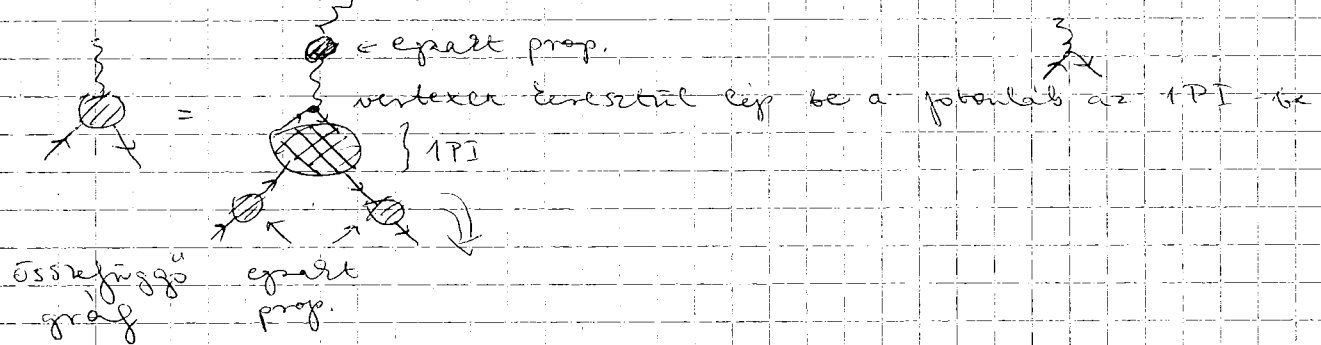 ← egzakt prop.
vertexen keresztül lép be a fotonláb az 1PI-be
=
} 1PI
összefüggő
gráf
egzakt
prop.